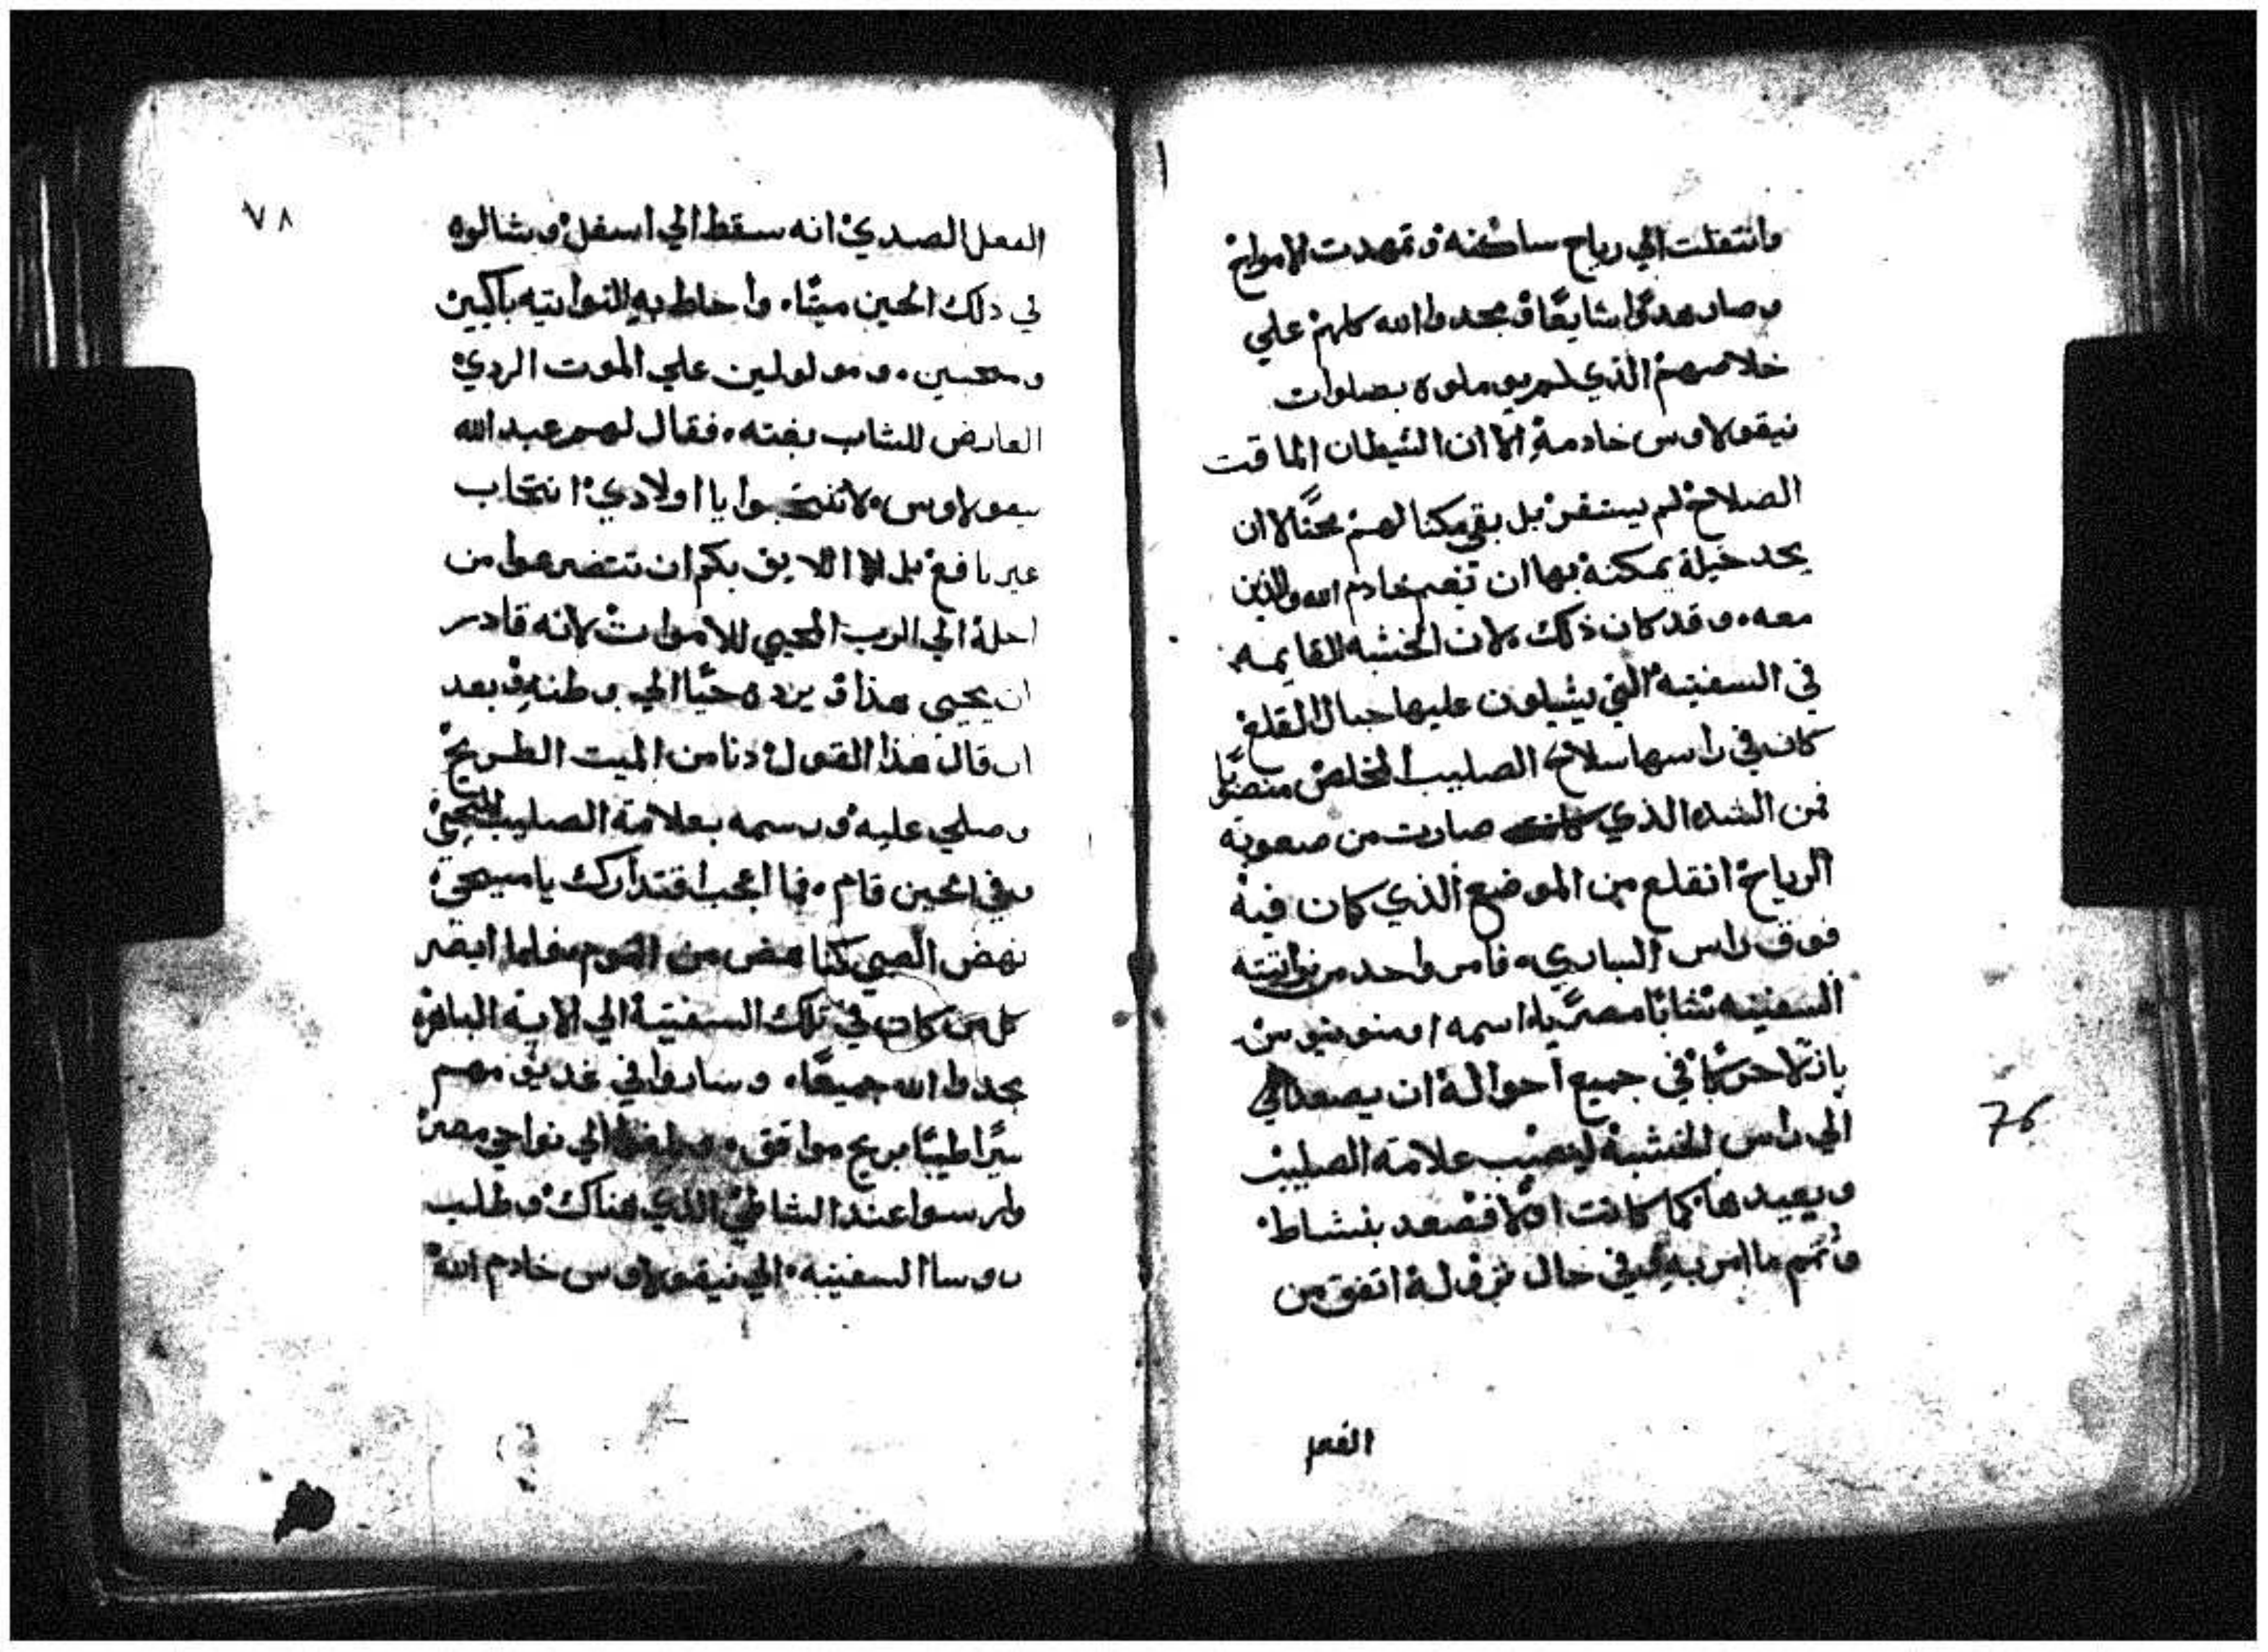 وانتقلت الي رياح ساكنه وتمهدت الامواج
وصار هدوا شايعا ومجدوا الله كلهم علي
خلاصهم الذي لم يوملوه بصلوات
نيقولاوس خادمه الا ان الشيطان الماقت
الصلاح لم يستقر بل بقي مكنا لهم محتالا ان
يجد حيلة يمكنه بها ان تغم خادم الله والذين
معه وقد كان ذلك لان الخشبه القايمه
في السفينه التي يشيلون عليها حبال القلع
كان في راسها سلاح الصليب المخلص منصوبا
فمن الشده الذي صارت من صعوبة
الرياح انقلع من الموضع الذي كان فيه
فوق راس الساري فامر واحد من نواتية
السفينه شابا مصريا اسمه امونيوس
باذلا حرصا في جميع احواله ان يصعد الي
الي راس الخشبة لينصب علامة الصليب
ويعيدها كما كانت اولا فصعد بنشاط
وتمم ما امر به وفي حال نزوله اتفق من
الفعل
76
٧٨
الفعل الصدي انه سقط الي اسفل وشالوه
في ذلك الحين ميتا واحاط به النواتيه باكيين
ومولولين علي الموت الردي
العارض للشاب بغته فقال لهم عبد الله
نيقولاوس لا تنتحبوا يا اولادي انتحاب
غير نافع بل الا اللايق بكم ان تتضرعوا من
اجله الي الرب المحيي للاموات لانه قادر
ان يحيي هذا ويرده حيا الي وطنه وبعد
ان قال هذا القول دنا من الميت الطريح
وصلي عليه ورسمه بعلامة الصليب المحيي
وفي الحين قام فما اعجب اقتدارك يا مسيحي
نهض الصبي كنا هض من النوم فلما ابصر
كل من كان في تلك السفينة الي الاية الباهره
مجدوا الله جميعا وساروا في غد يومهم
سيرا طيبا بريح موافق وبلغوا الي نواحي مصر
وارسوا عند الشاطي الذي هناك وطلب
روسا السفينه الي نيقولاوس خادم الله